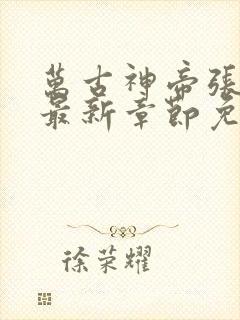 萬古神帝張
最新章節免
徐荣耀